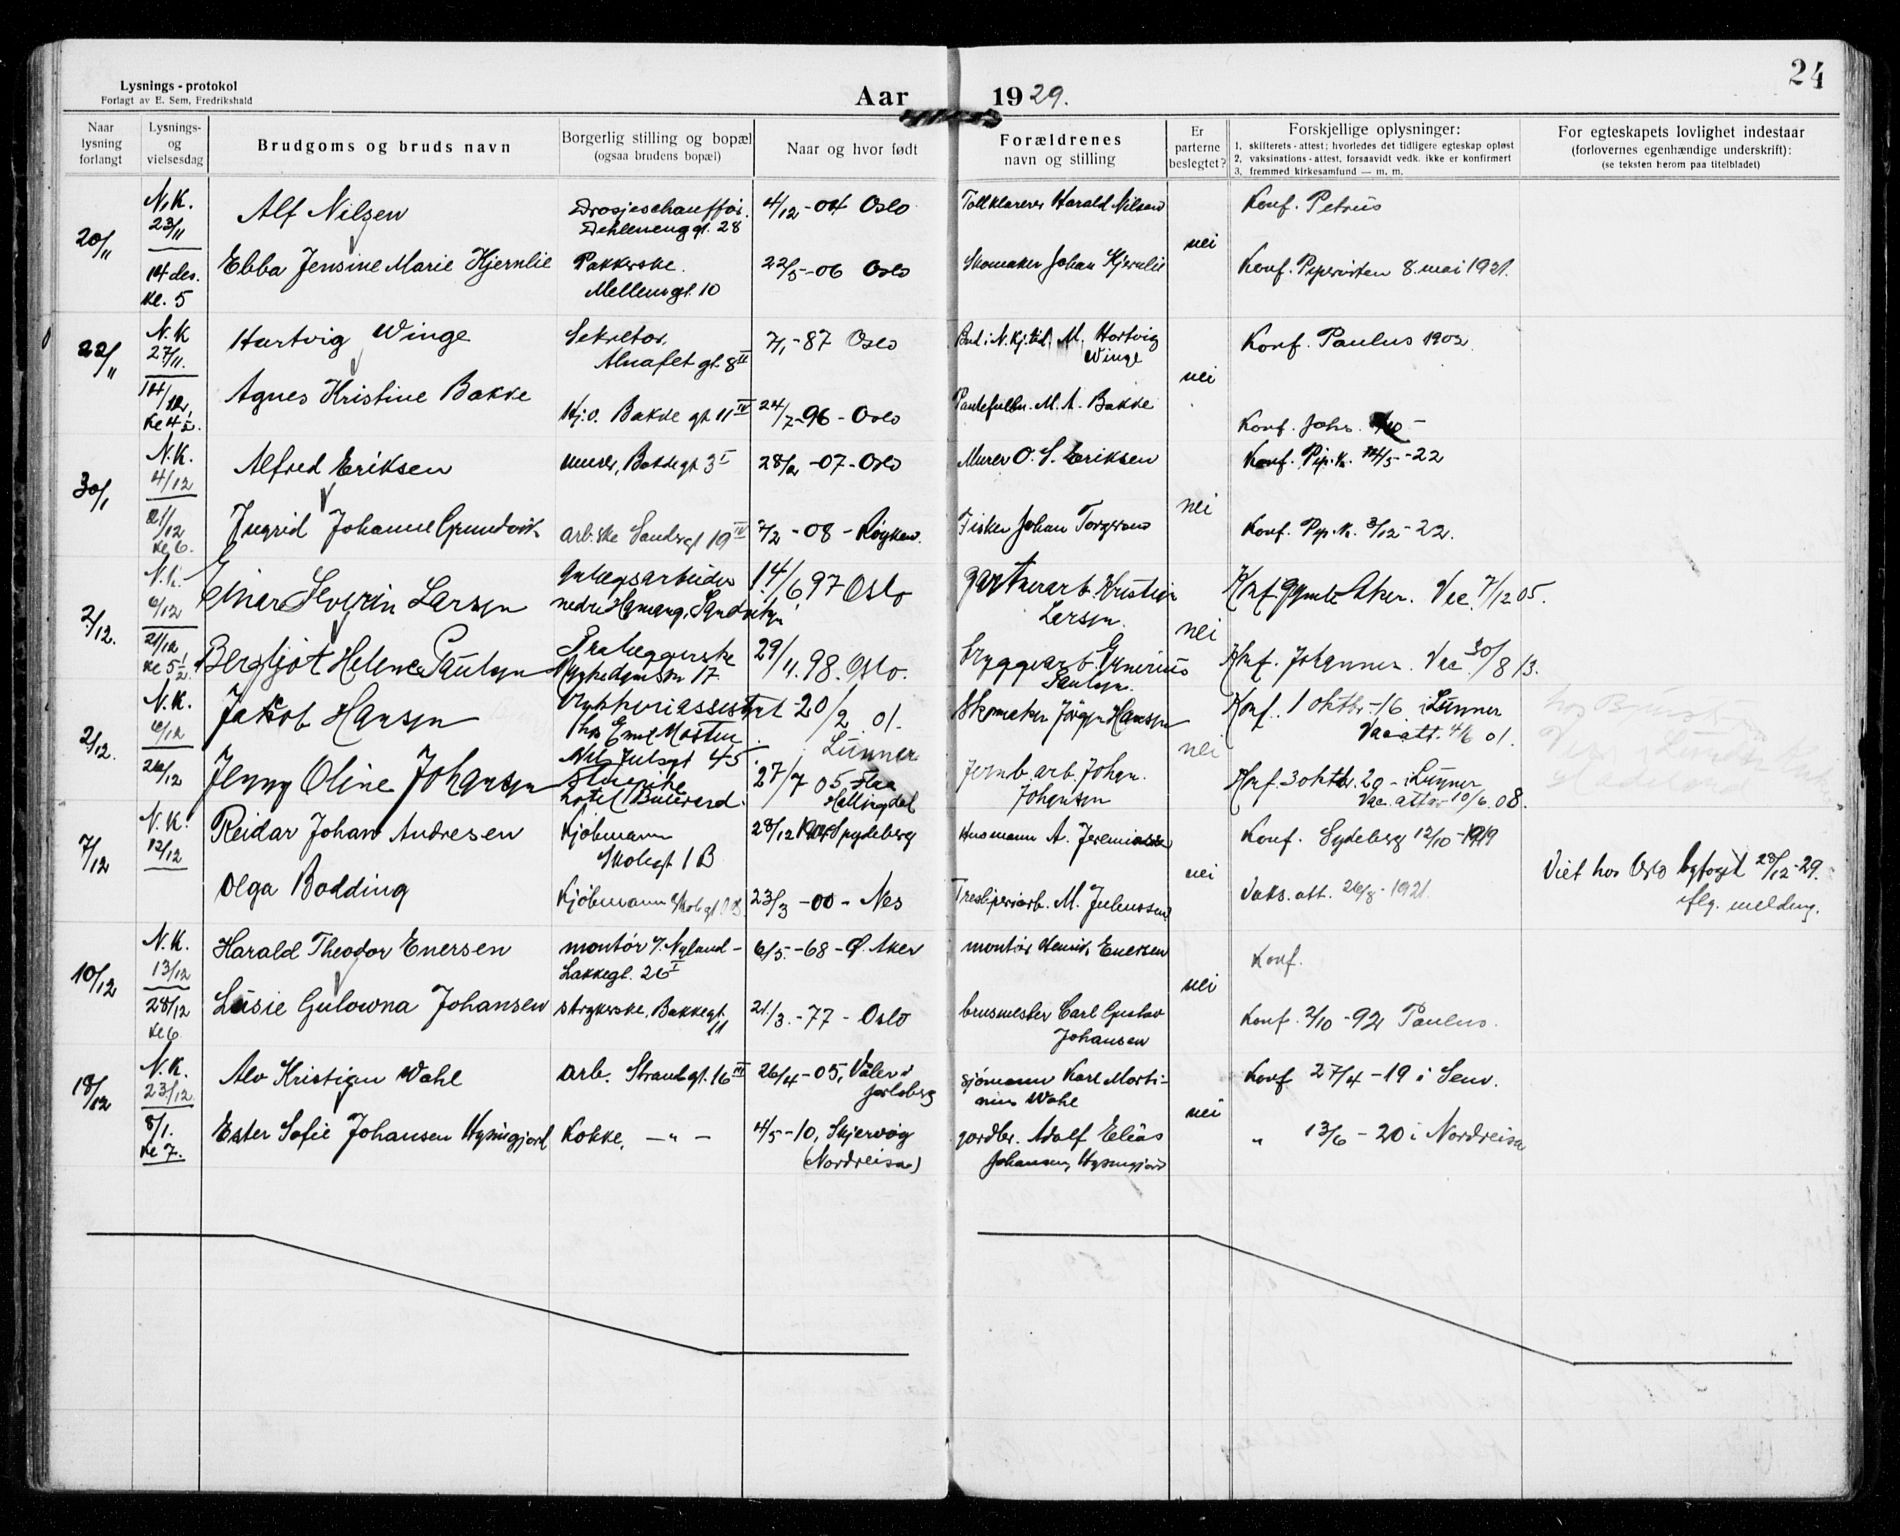 24
Lysnings - protokol
Forlagt av E. Sem, Fredrikshald
Aar 1929.
Naar lysning forlangt
Lysnings- og vielsesdag
Brudgoms og bruds navn
Borgerlig stilling og bopæl
(ogsaa brudens bopæl)
Naar og hvor født
Forældrenes
navn og stilling
Er parterne beslegtet?
Forskjellige oplysninger:
1. skifterets - attest; hvorledes det tidligere egteskap opløst
2. vaksinations - attest, forsaavidt vedk. ikke er konfirmert
3. fremmed kirkesamfund — m. m.
For egteskapets lovlighet indestaar
(forlovernes egenhændige underskrift):
(se teksten herom paa titelbladet)
20/11
N.K. 23/11
Alf Nilsen
Drosjeschauffør.
4/12 - 04 Oslo
Tollklarerer Harald Nilsen
Konf. Petrus
nei
14 des. kl. 5
Ebba Jensine Marie Hjernlie
Pakkerske.
22/5 - 06 Oslo
Skomaker Johan Hjernlie
Konf. 8. mai 1921.
22/11
N.K 27/11.
Hartvig Winge
Sekretær.
7/1 - 87 Oslo
M. Hartvig
Winge
Konf. Paulus 1902
nei
Agnes Kristine Bakke
Bakke gt 11 IV
24/7 - 96 - Oslo
M. A. Bakke
Konf. Johs.
N.K. 4/12
Alfred Eriksen
murer, Bakkegt 3 I
28/2 - 07 - Oslo
Murer O. S. Eriksen
Konf. Pip. K. 14/5 - 22
nei
21/12 kl 6.
Ingrid Johanne Grundvik
arb.ske Sandsgt 19 IV
7/2 - 08 - Røyken.
Fisker Johan
Konf. Pip. K. 3/12 - 22.
2/12.
N.K. 6/12
Einar Severin Larsen
14/6 97 Oslo
gartnerarb. Kristian
Larsen.
Konf. gamle Aker. Vac. 7/12 05.
nei
21/12 kl 5 1/2
Bergljot Helene Paulsen
29/11. 98. Oslo.
bryggearb.
Paulsen.
Konf. Johannes. Vac 30/8 13.
2/12.
N.K. 6/12
Jakob Hansen
20/2 01.
Lunner
Skomaker Jørgen Hansen
Konf. 1 oktbr. -16 i Lunner
Vacatt. 4/6 01.
nei
26/12
Jenny Oline Johansen
Hotel Bulevard.
27/7 05 Flaa
Hallingdal
Jernb. arb. Johan.
Johansen
Konf. 3 oktbr. 20 - i Lunner
Vac. attest 10/6. 08.
7/12
N.K. 12/12
Reidar Johan Andresen
Kjøbmann
28/12 1904 Spydeberg
Husmann A. Jeremiassen
Konf. Spydeberg 12/10 - 1919
nei
Viet hos Oslo byfogd 28/12 - 29.
iflg. melding.
Olga Bodding
Kjøbmann
23/3 - 00 - Nes
Tresliperiarb. M. Juliussen
Vaks. att. 26/8 - 1921.
10/12
N.K. 13/12
Harald Theodor Enersen
montør v. Nyland -
Lakkegt. 26 I
6/5 - 68 - Ø. Aker
montør Henrik Enersen
Konf.
nei
28/12 kl 6
Lusie Gulowna Johansen
strykerske, Bakkegt. 11
21/3. - 77 - Oslo
brusmester Carl Gustav
Johansen
Konf. 2/10 - 92 Paulus.
18/12
N.K. 23/12
Alv Kristian Wahl
arb. Strandgt. 16 III
26/4 - 05, Våler i
Jarlsberg
sjømann Karl Marti-
nius Wahl
Konf 27/4 - 19 i Sem.
nei
8/1. kl 7.
Ester Sofie Johansen Hysingjord
Kokke, — " —
4/5 - 10, Skjervøy
(Nordreisa)
gardbr. Adolf Elias
Johansen Hysingjord
" 13/6 - 20 i Nordreisa